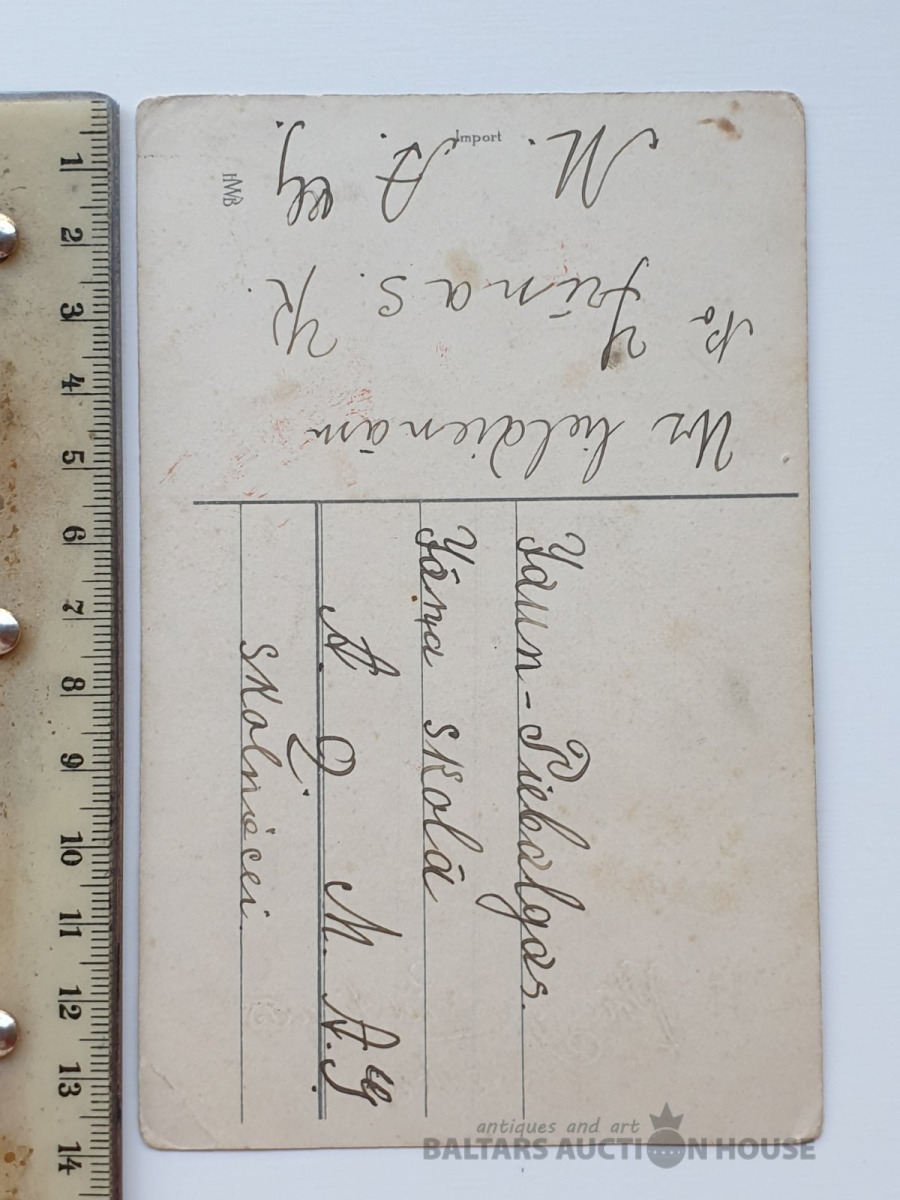 Jaun-Piebalgas.
Jāņa skolā
A. M. A.
skolniecei.
Uz lieldienām
No
M. A.
Import
HWB
1 2 3 4 5 6 7 8 9 10 11 12 13 14
antiques and art
BALTARS AUCTION HOUSE